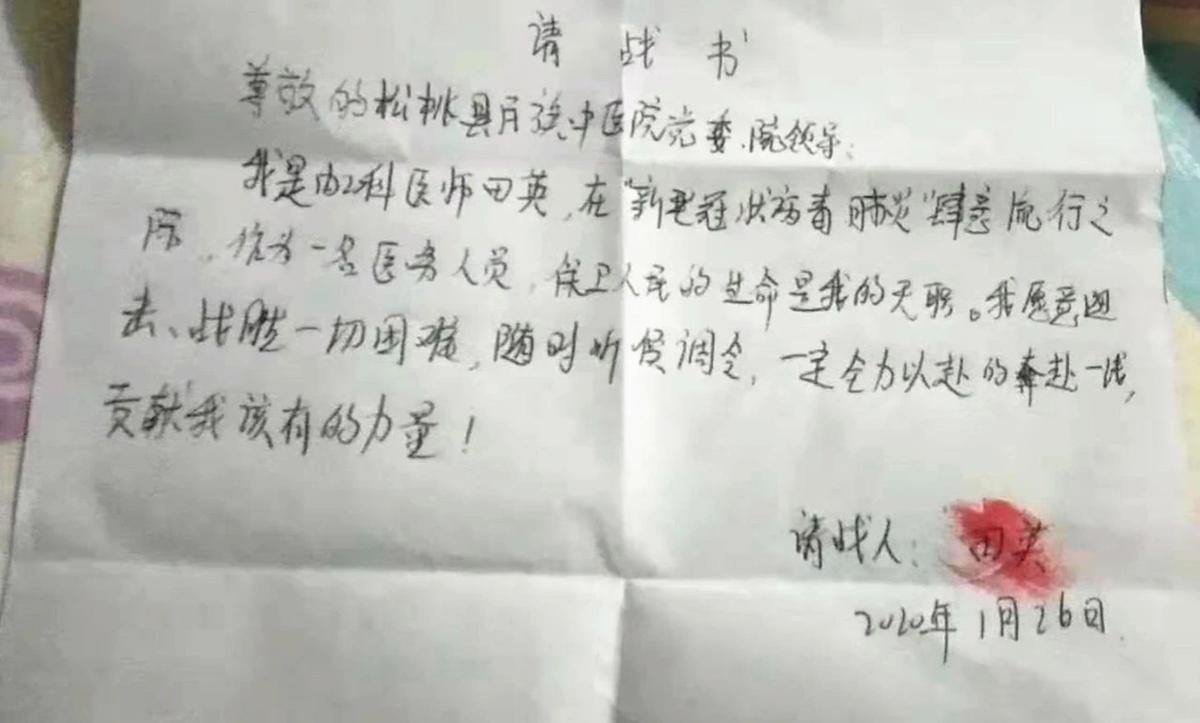 请战书
尊敬的松桃县民族中医院党委、院领导:
我是内二科医师田英,在"新型冠状病毒肺炎"肆意流行之
际,作为一名医务人员,保卫人民的生命是我的天职。我愿意迎
去、战胜一切困难,随时听候调令,一定全力以赴的奔赴一线,
贡献我该有的力量!
请战人: 田英
2020年1月26日.